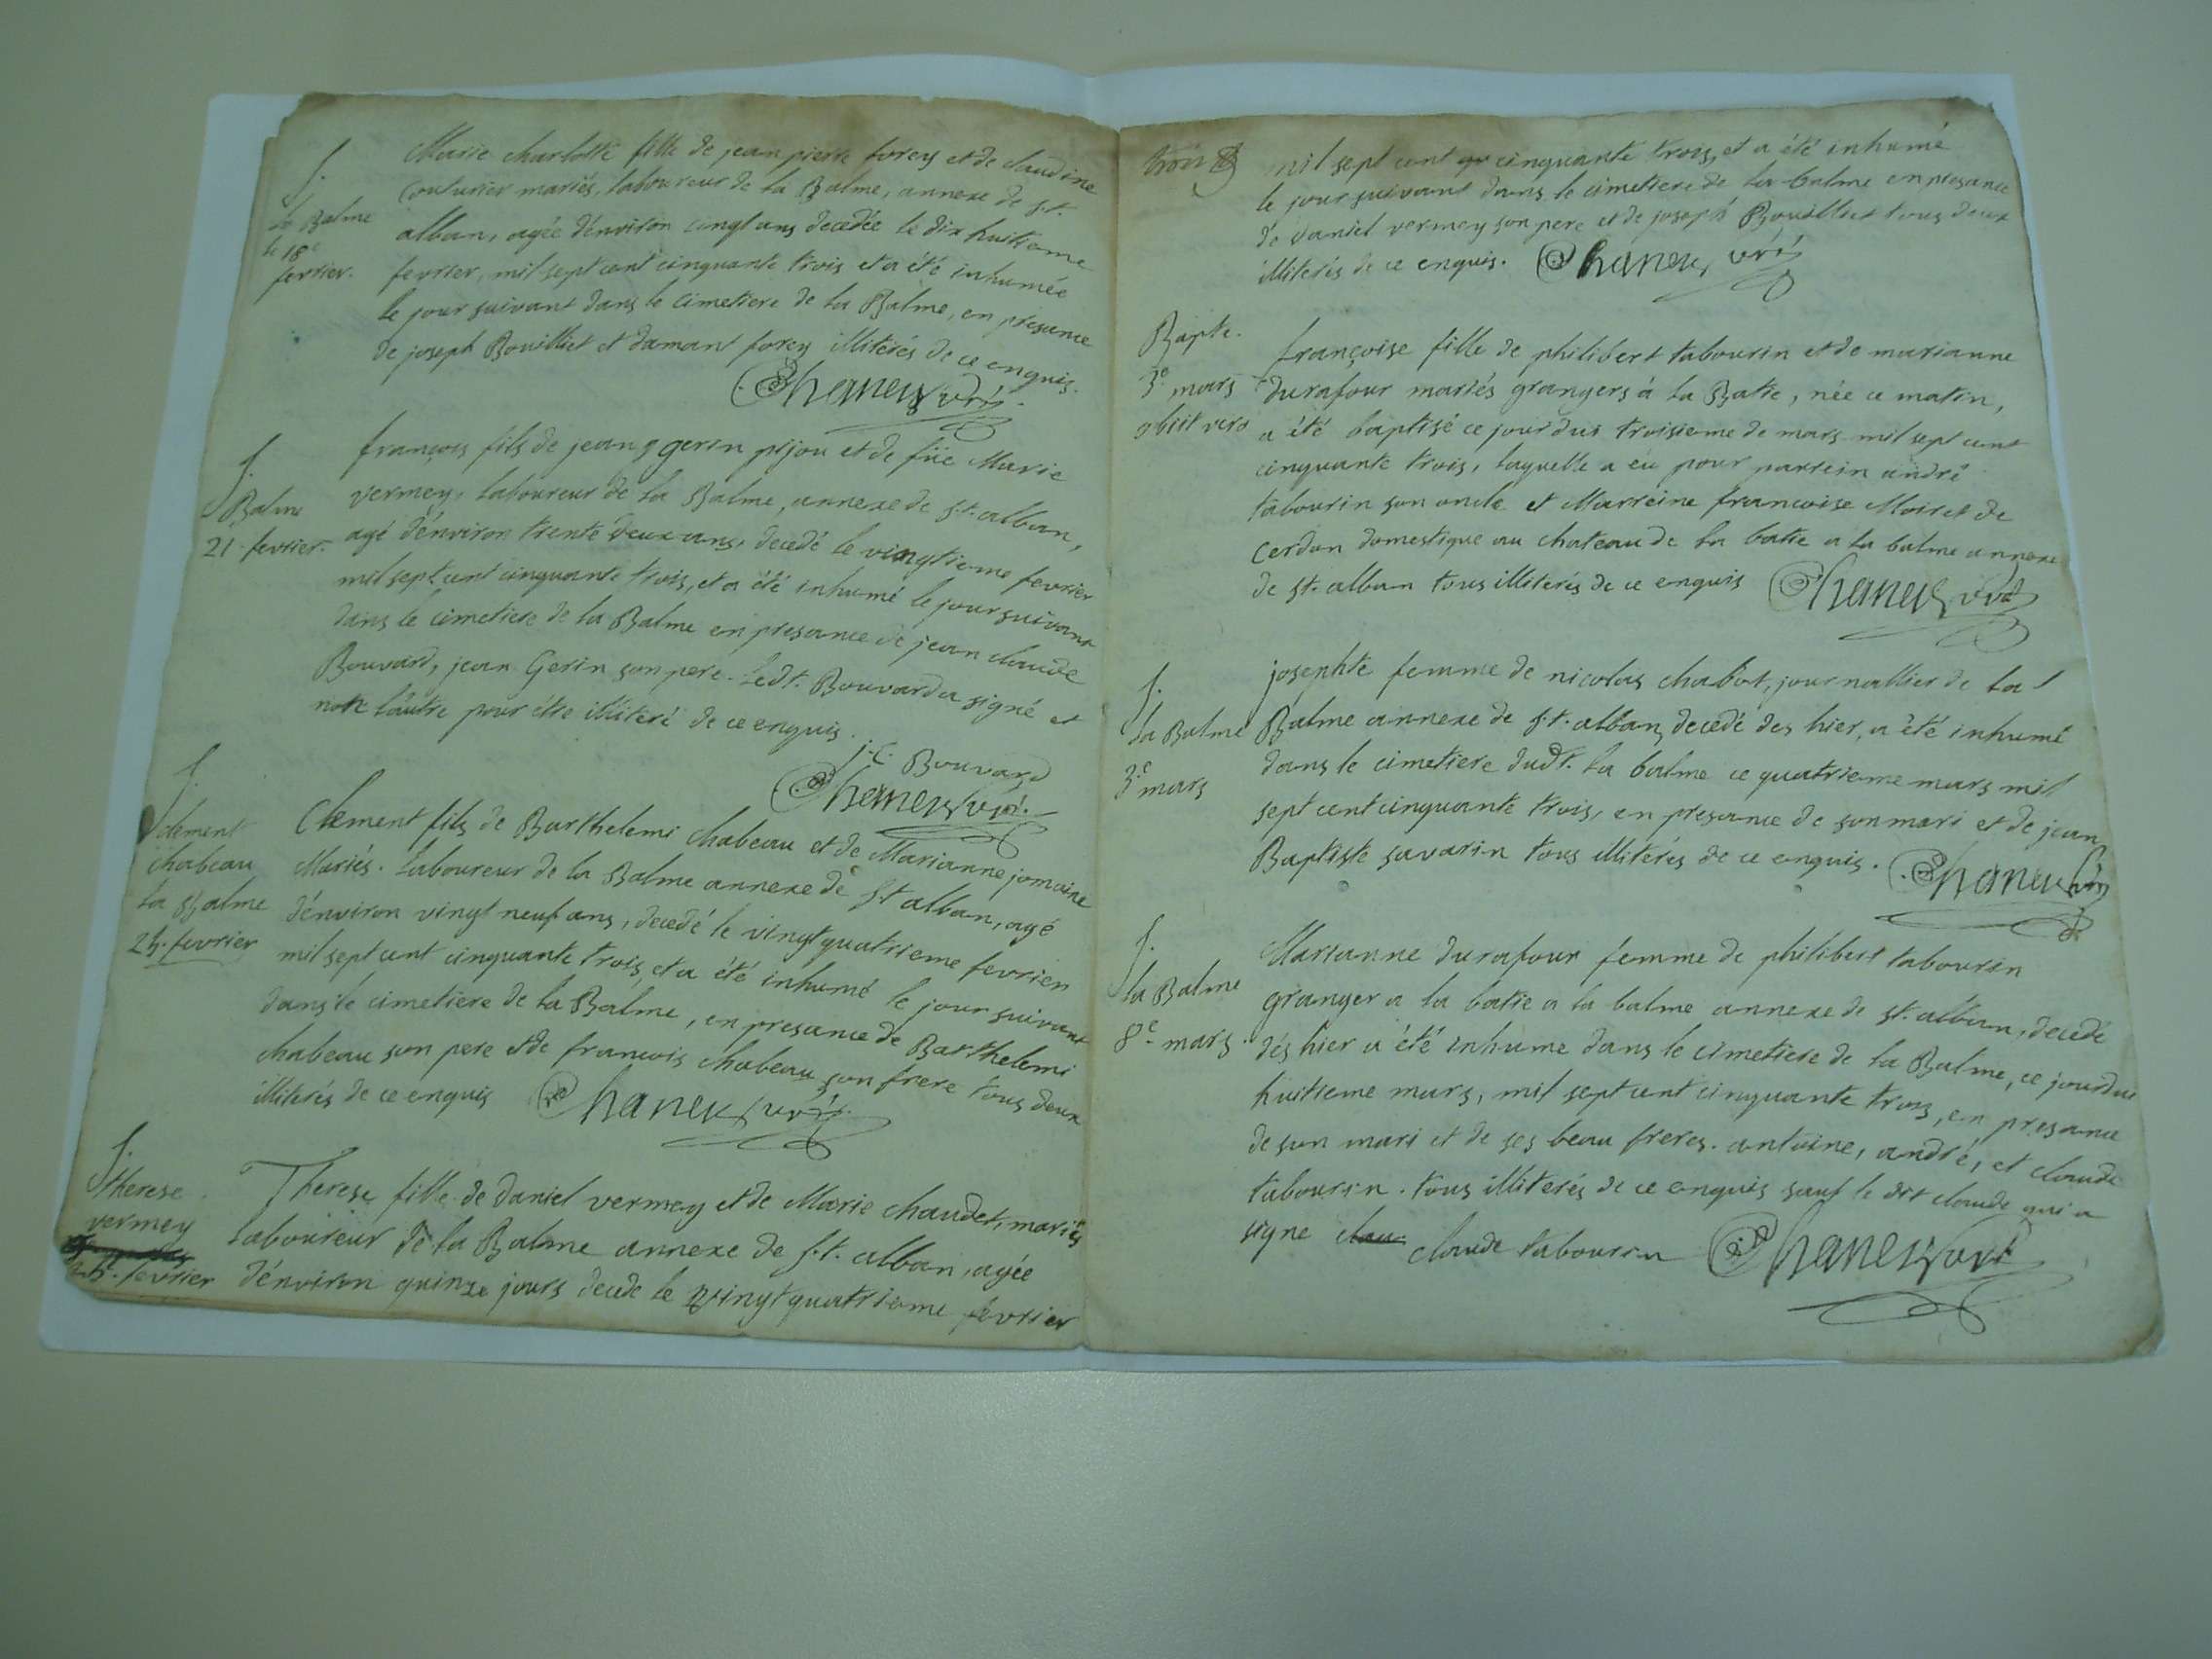 S.
la Balme
le 18e
fevrier.
Marie charlotte fille de jean pierre forey et de claudine
Couturier mariés, laboureur de la Balme, annexe de st.
alban, agée d'environ cinq ans decedée le dix huitieme
fevrier, mil sept cent cinquante trois et a été inhumée
le jour suivant dans le cimetiere de la Balme, en presance
de joseph Bouilliet et damant forey illiterés de ce enquis.
S.
Balme
21. fevrier.
françois fils de jean gerin pijou et de füe Marie
vermey, laboureur de la Balme, annexe de st. alban,
agé d'environ trente deux ans, decedé le vingtieme fevrier
mil sept cent cinquante trois, et a été inhumé le jour suivant
dans le cimetiere de la Balme en presance de jean claude
Bouvard, jean Gerin son pere. Ledt. Bouvard a signé et
non l'autre pour être illiteré de ce enquis.
j. C. Bouvard
S.
clement
chabeau
la Balme
25. fevrier
Clement fils de Barthelemi chabeau et de Marianne jomaine
Mariés. Laboureur de la Balme annexe de st alban, agé
d'environ vingt neuf ans, decedé le vingt quatrieme fevrier
mil sept cent cinquante trois, et a été inhumé le jour suivant
dans le cimetiere de la Balme, en presance de Barthelemi
chabeau son pere et de francois chabeau son frere tous deux
illiterés de ce enquis
S.
therese
vermey
25. fevrier
Therese fille de daniel vermey et de Marie chaudet, mariés
Laboureur de la Balme annexe de st. alban, agée
d'environ quinze jours decede le vingt quatrieme fevrier
trois
mil sept cent cinquante trois, et a été inhumé
le jour suivant dans le cimetiere de la balme en presance
de daniel vermey son pere et de joseph Bouilliet tous deux
illiterés de ce enquis.
Bapte.
3e. mars
obiit vero
françoise fille de philibert tabourin et de marianne
durafour mariés grangers à la Batie, née ce matin,
a été baptisé ce jourdui troisieme de mars mil sept cent
cinquante trois, laquelle a eu pour parrein andré
tabourin son oncle et Marreine francoise Moiret de
Cerdon domestique au chateau de la batie a la balme annexe
de st. alban tous illiterés de ce enquis
S.
la Balme
3.e mars
josephte femme de nicolas chabot, journallier de la
Balme annexe de st. alban, decedé des hier, a été inhumé
dans le cimetiere dudt. la balme ce quatrieme mars mil
sept cent cinquante trois, en presance de son mari et de jean
Baptiste savarin tous illiterés de ce enquis.
S.
la Balme
8e. mars.
Marianne durafour femme de philibert tabourin
granger a la batie a la balme annexe de st. alban, decedé
dés hier a été inhume dans le cimetiere de la Balme, ce jourdui
huitieme mars, mil sept cent cinquante trois, en presance
de son mari et de ses beau freres. antoine, andré, et claude
tabourin. tous illiterés de ce enquis sauf le dit claude qui a
signe clau claude tabourin